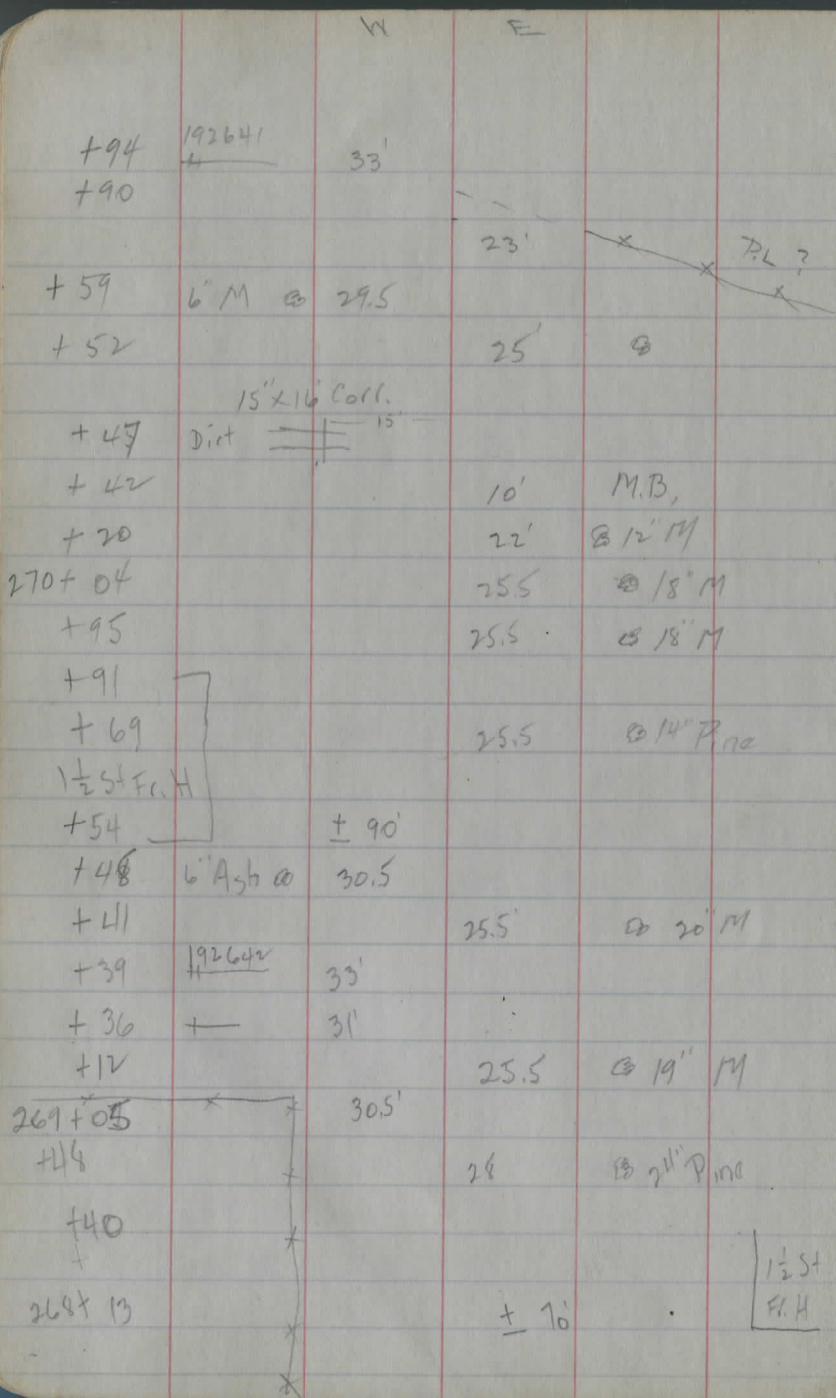 W E
192641
+94 33'
+90
23' P.L ?
+59 6" M 29.5
+52 25'
15" x 16' Corr.
15'
+47 Dirt
+42 10' M.B,
+20 22' 12" M
270+04 25.5 18" M
+95 25.5 18" M
+91
+69 25.5 14" Pine
1½ St Fr. H
+54 ± 90'
+48 6" Ash 30.5
+41 25.5' 20" M
192642
+39 33'
+36 31'
+12 25.5 19" M
269+05 30.5'
+48 28 24" Pine
+40
+
1½ St
Fr. H
268+13 ± 70'